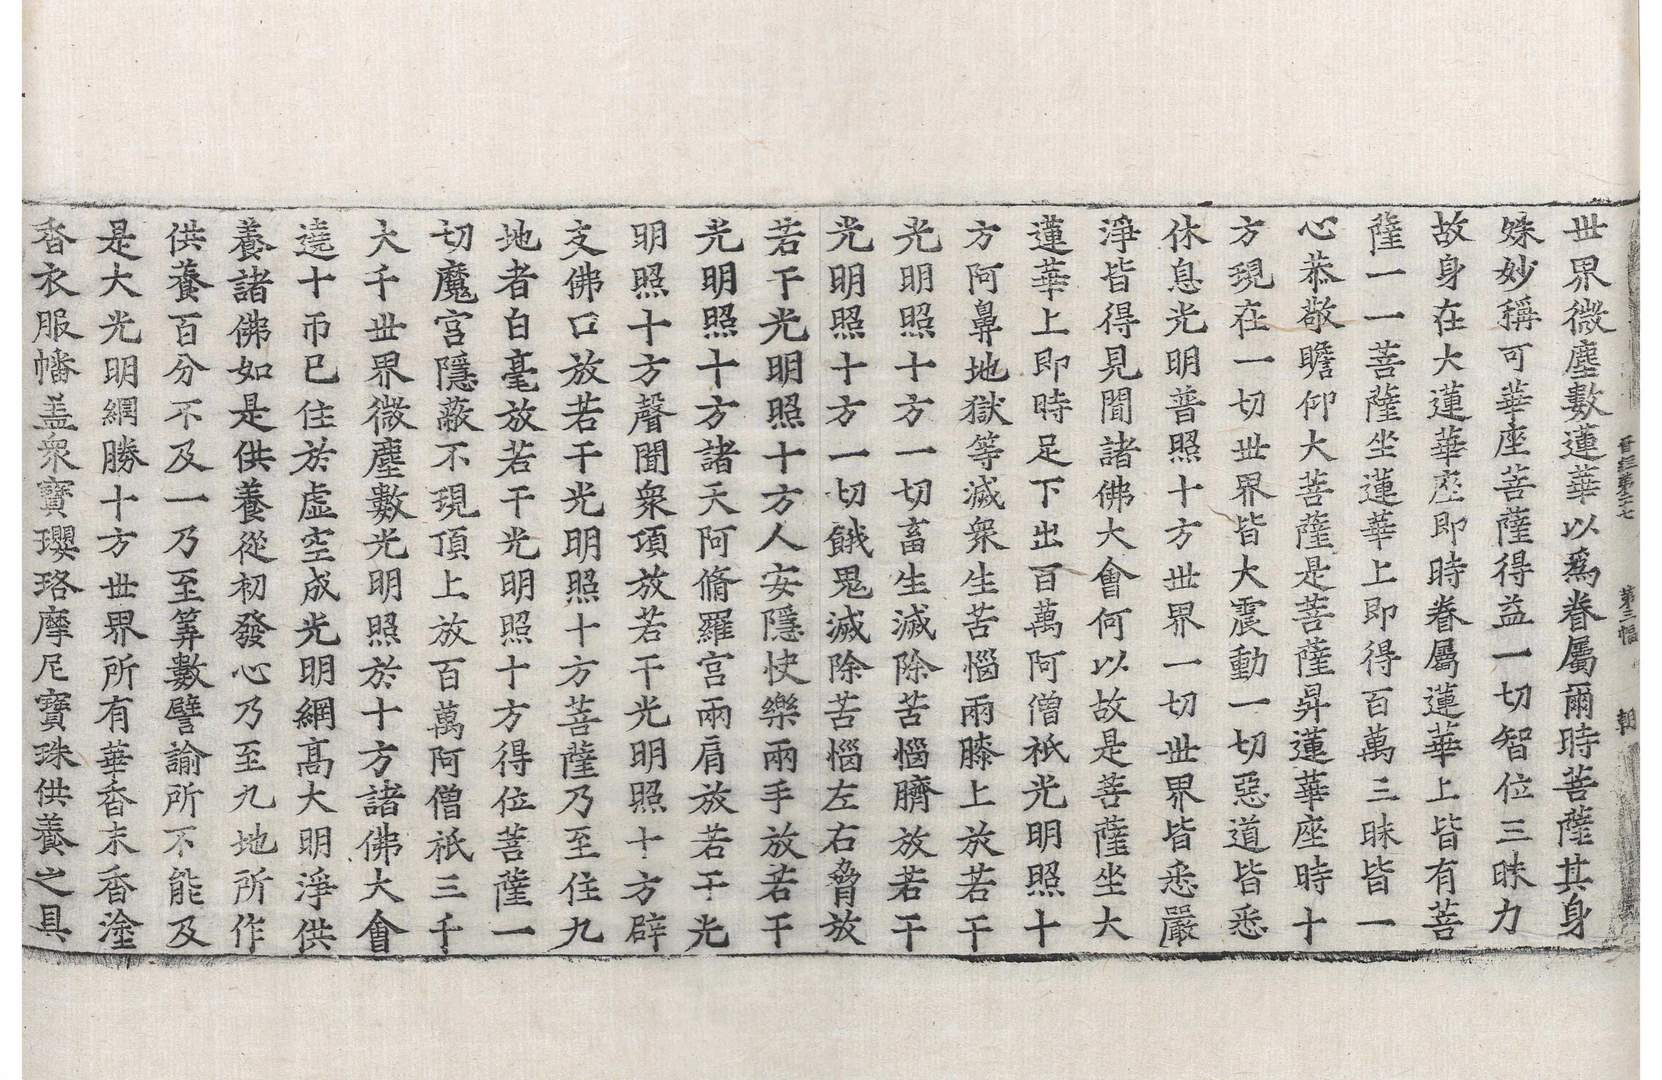 晉經第二七　第三幅　朝
世界微塵數蓮華以爲眷屬爾時菩薩其身
姝妙稱可華座菩薩得益一切智位三昧力
故身在大蓮華座即時眷屬蓮華上皆有菩
薩一一菩薩坐蓮華上即得百萬三昧皆一
心恭敬瞻仰大菩薩是菩薩昇蓮華座時十
方現在一切世界皆大震動一切惡道皆悉
休息光明普照十方世界一切世界皆悉嚴
淨皆得見聞諸佛大會何以故是菩薩坐大
蓮華上即時足下出百萬阿僧祇光明照十
方阿鼻地獄等滅衆生苦惱兩膝上放若干
光明照十方一切畜生滅除苦惱臍放若干
光明照十方一切餓鬼滅除苦惱左右脅放
若干光明照十方人安隱快樂兩手放若干
光明照十方諸天阿脩羅宮兩肩放若干光
明照十方聲聞衆項放若干光明照十方辟
支佛口放若干光明照十方菩薩乃至住九
地者白毫放若干光明照十方得位菩薩一
切魔宮隱蔽不現頂上放百萬阿僧祇三千
大千世界微塵數光明照於十方諸佛大會
遶十帀已住於虛空成光明網高大明淨供
養諸佛如是供養從初發心乃至九地所作
供養百分不及一乃至筭數譬諭所不能及
是大光明網勝十方世界所有華香末香塗
香衣服幡盖衆寶瓔珞摩尼寶珠供養之具